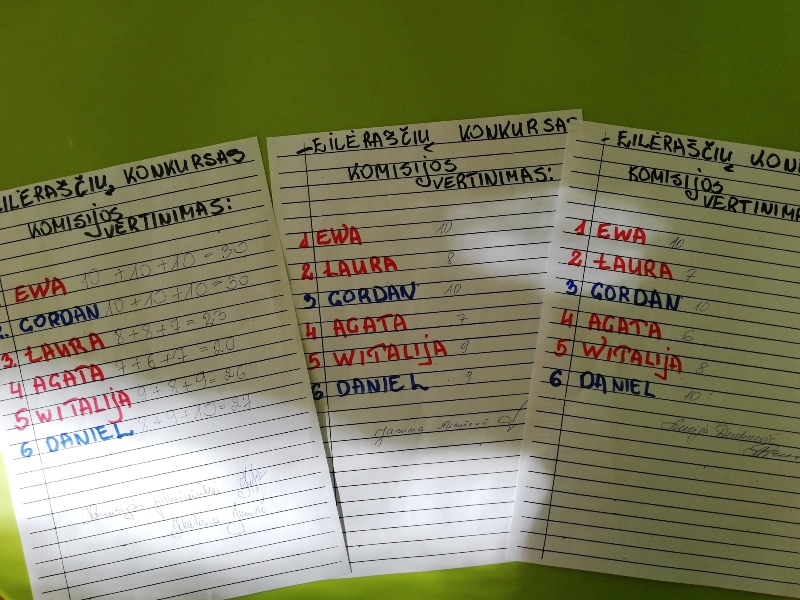 EILĖRAŠČIŲ KONKURSAS
KOMISIJOS
VERTINIMAS:
EWA 10+10+10=30
2. GORDAN 10+10+10=30
3. ŁAURA 8+8+7=23
4 AGATA 7+6+7=20
5 WITALIJA 9+8+9=26
6 DANIEL 8+9+10=27
- EILĖRAŠČIŲ KONKURSAS
KOMISIJOS
VERTINIMAS:
1 EWA 10
2 ŁAURA 8
3 GORDAN 10
4 AGATA 7
5 WITALIJA 9
6 DANIEL 9
- EILĖRAŠČIŲ KON
KOMISIJOS
VERTINIMA
1 EWA 10
2 ŁAURA 7
3 GORDAN 10
4 AGATA 6
5 WITALIJA 8
6 DANIEL 10